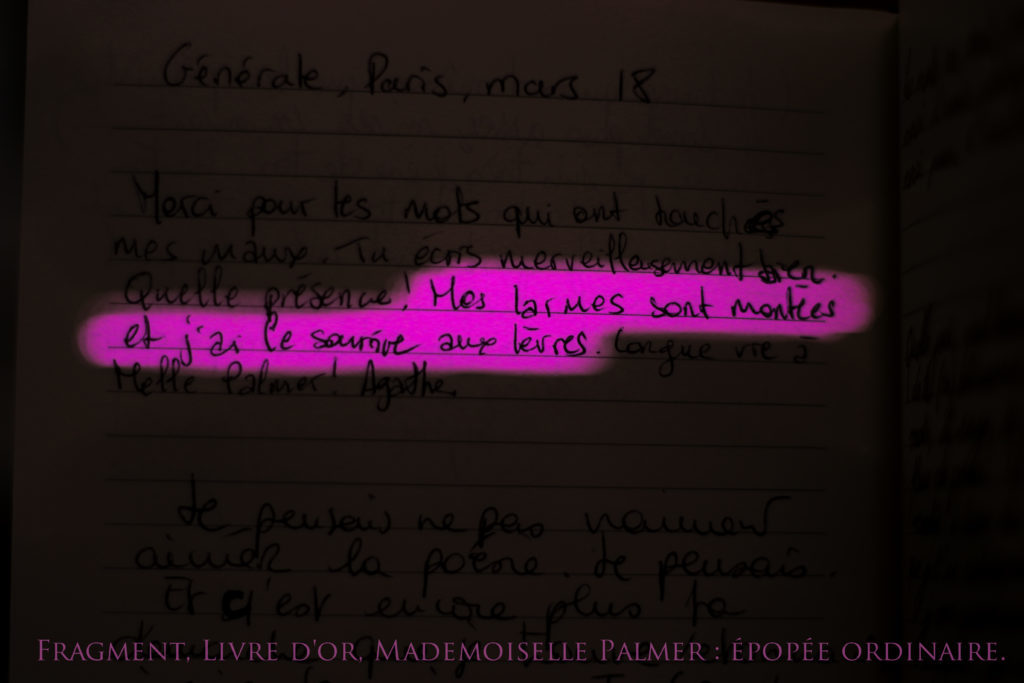 Générale, Paris, mars 18
Merci pour tes mots qui ont touchés
mes maux. Tu écris merveilleusement bien.
Quelle présence! Mes larmes sont montées
et j'ai le sourire aux lèvres. Longue vie à
Melle Palmer! Agathe.
Je pensais ne pas vraiment
aimer la poésie. Je pensais.
Et c'est encore plus ta
FRAGMENT, LIVRE D'OR, MADEMOISELLE PALMER : ÉPOPÉE ORDINAIRE.